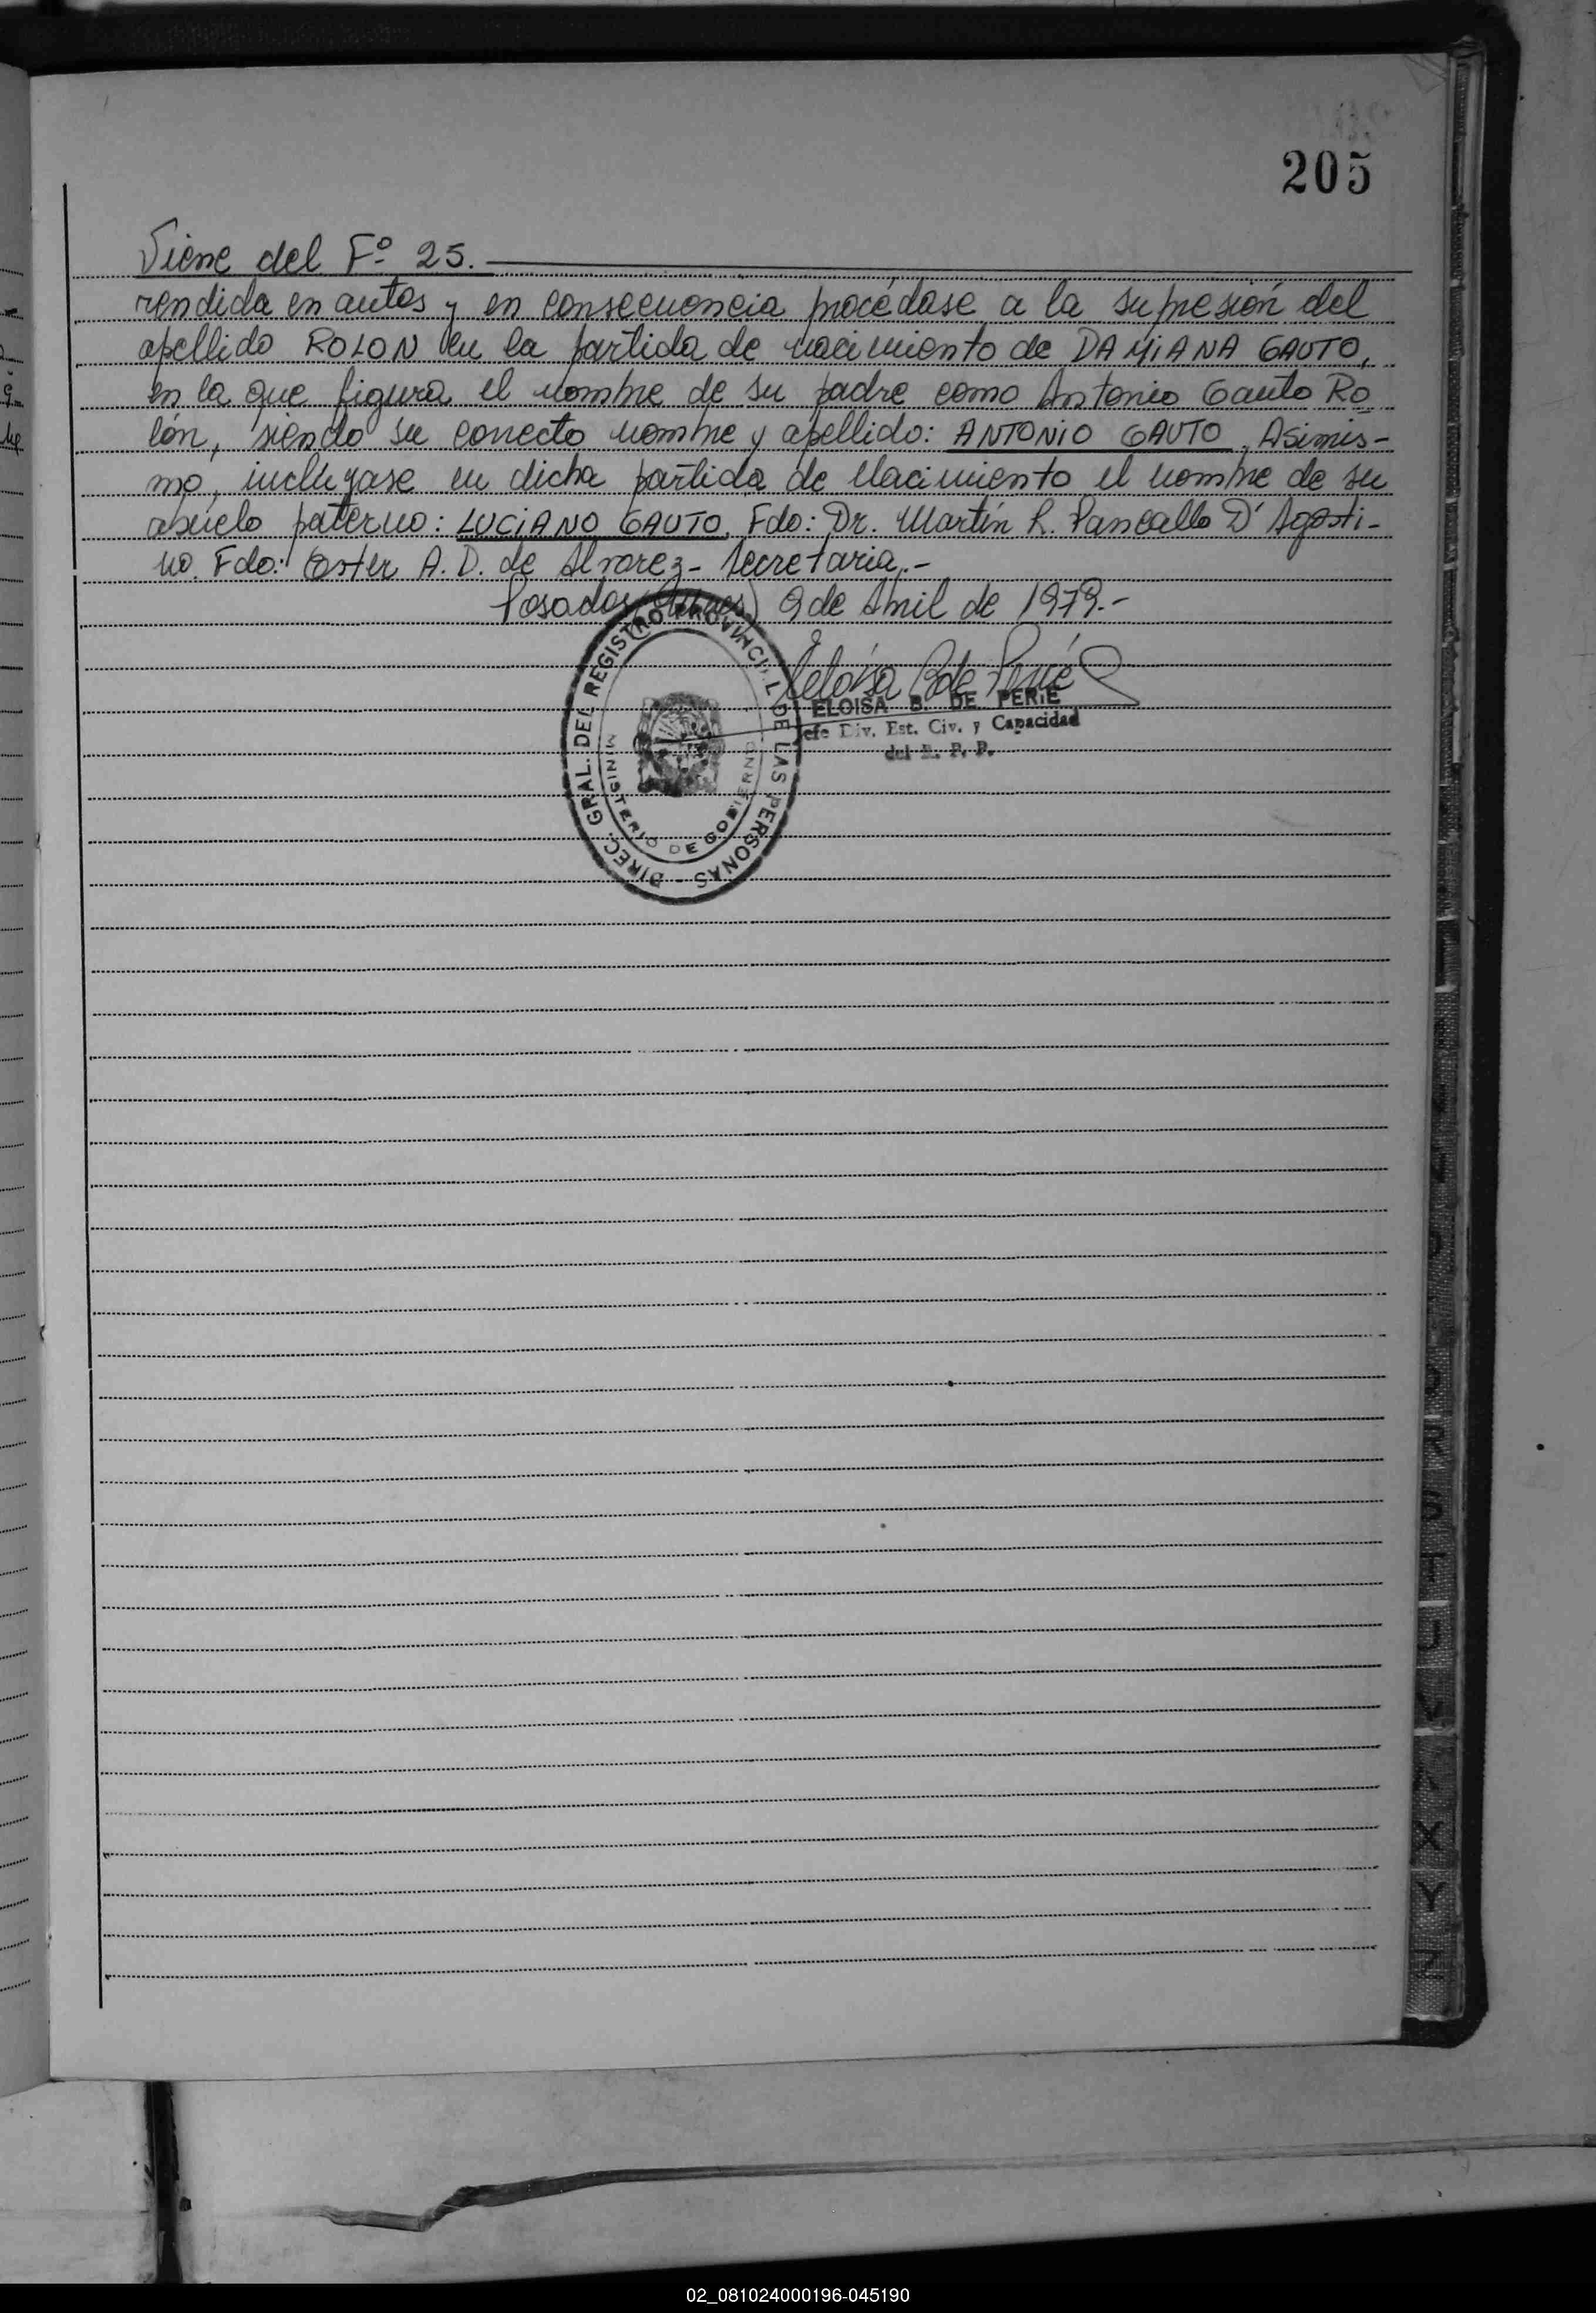 205
Viene del Fº 25.
rendida en autos y en consecuencia procédase a la supresión del
apellido ROLON en la partida de nacimiento de DAMIANA GAUTO,
en la que figura el nombre de su padre como Antonio Gauto Ro
lón, siendo su correcto nombre y apellido: ANTONIO GAUTO. Asimis-
mo, inclúyase en dicha partida de Nacimiento el nombre de su
abuelo paterno: LUCIANO GAUTO. Fdo: Dr. Martín R. D'Agosti-
no. Fdo: Ester A. D. de Alvarez - Secretaria.-
Posadas 9 de Abril de 1979.-
DIREC. GRAL. DEL REGISTRO PROVINCIAL DE LAS PERSONAS -
MINISTERIO DE GOBIERNO
ELOISA B. DE PERIE
Jefe Div. Est. Civ. y Capacidad
del R. P. P.
R
S
T
U
V
X
Y
Z
02_081024000196-045190